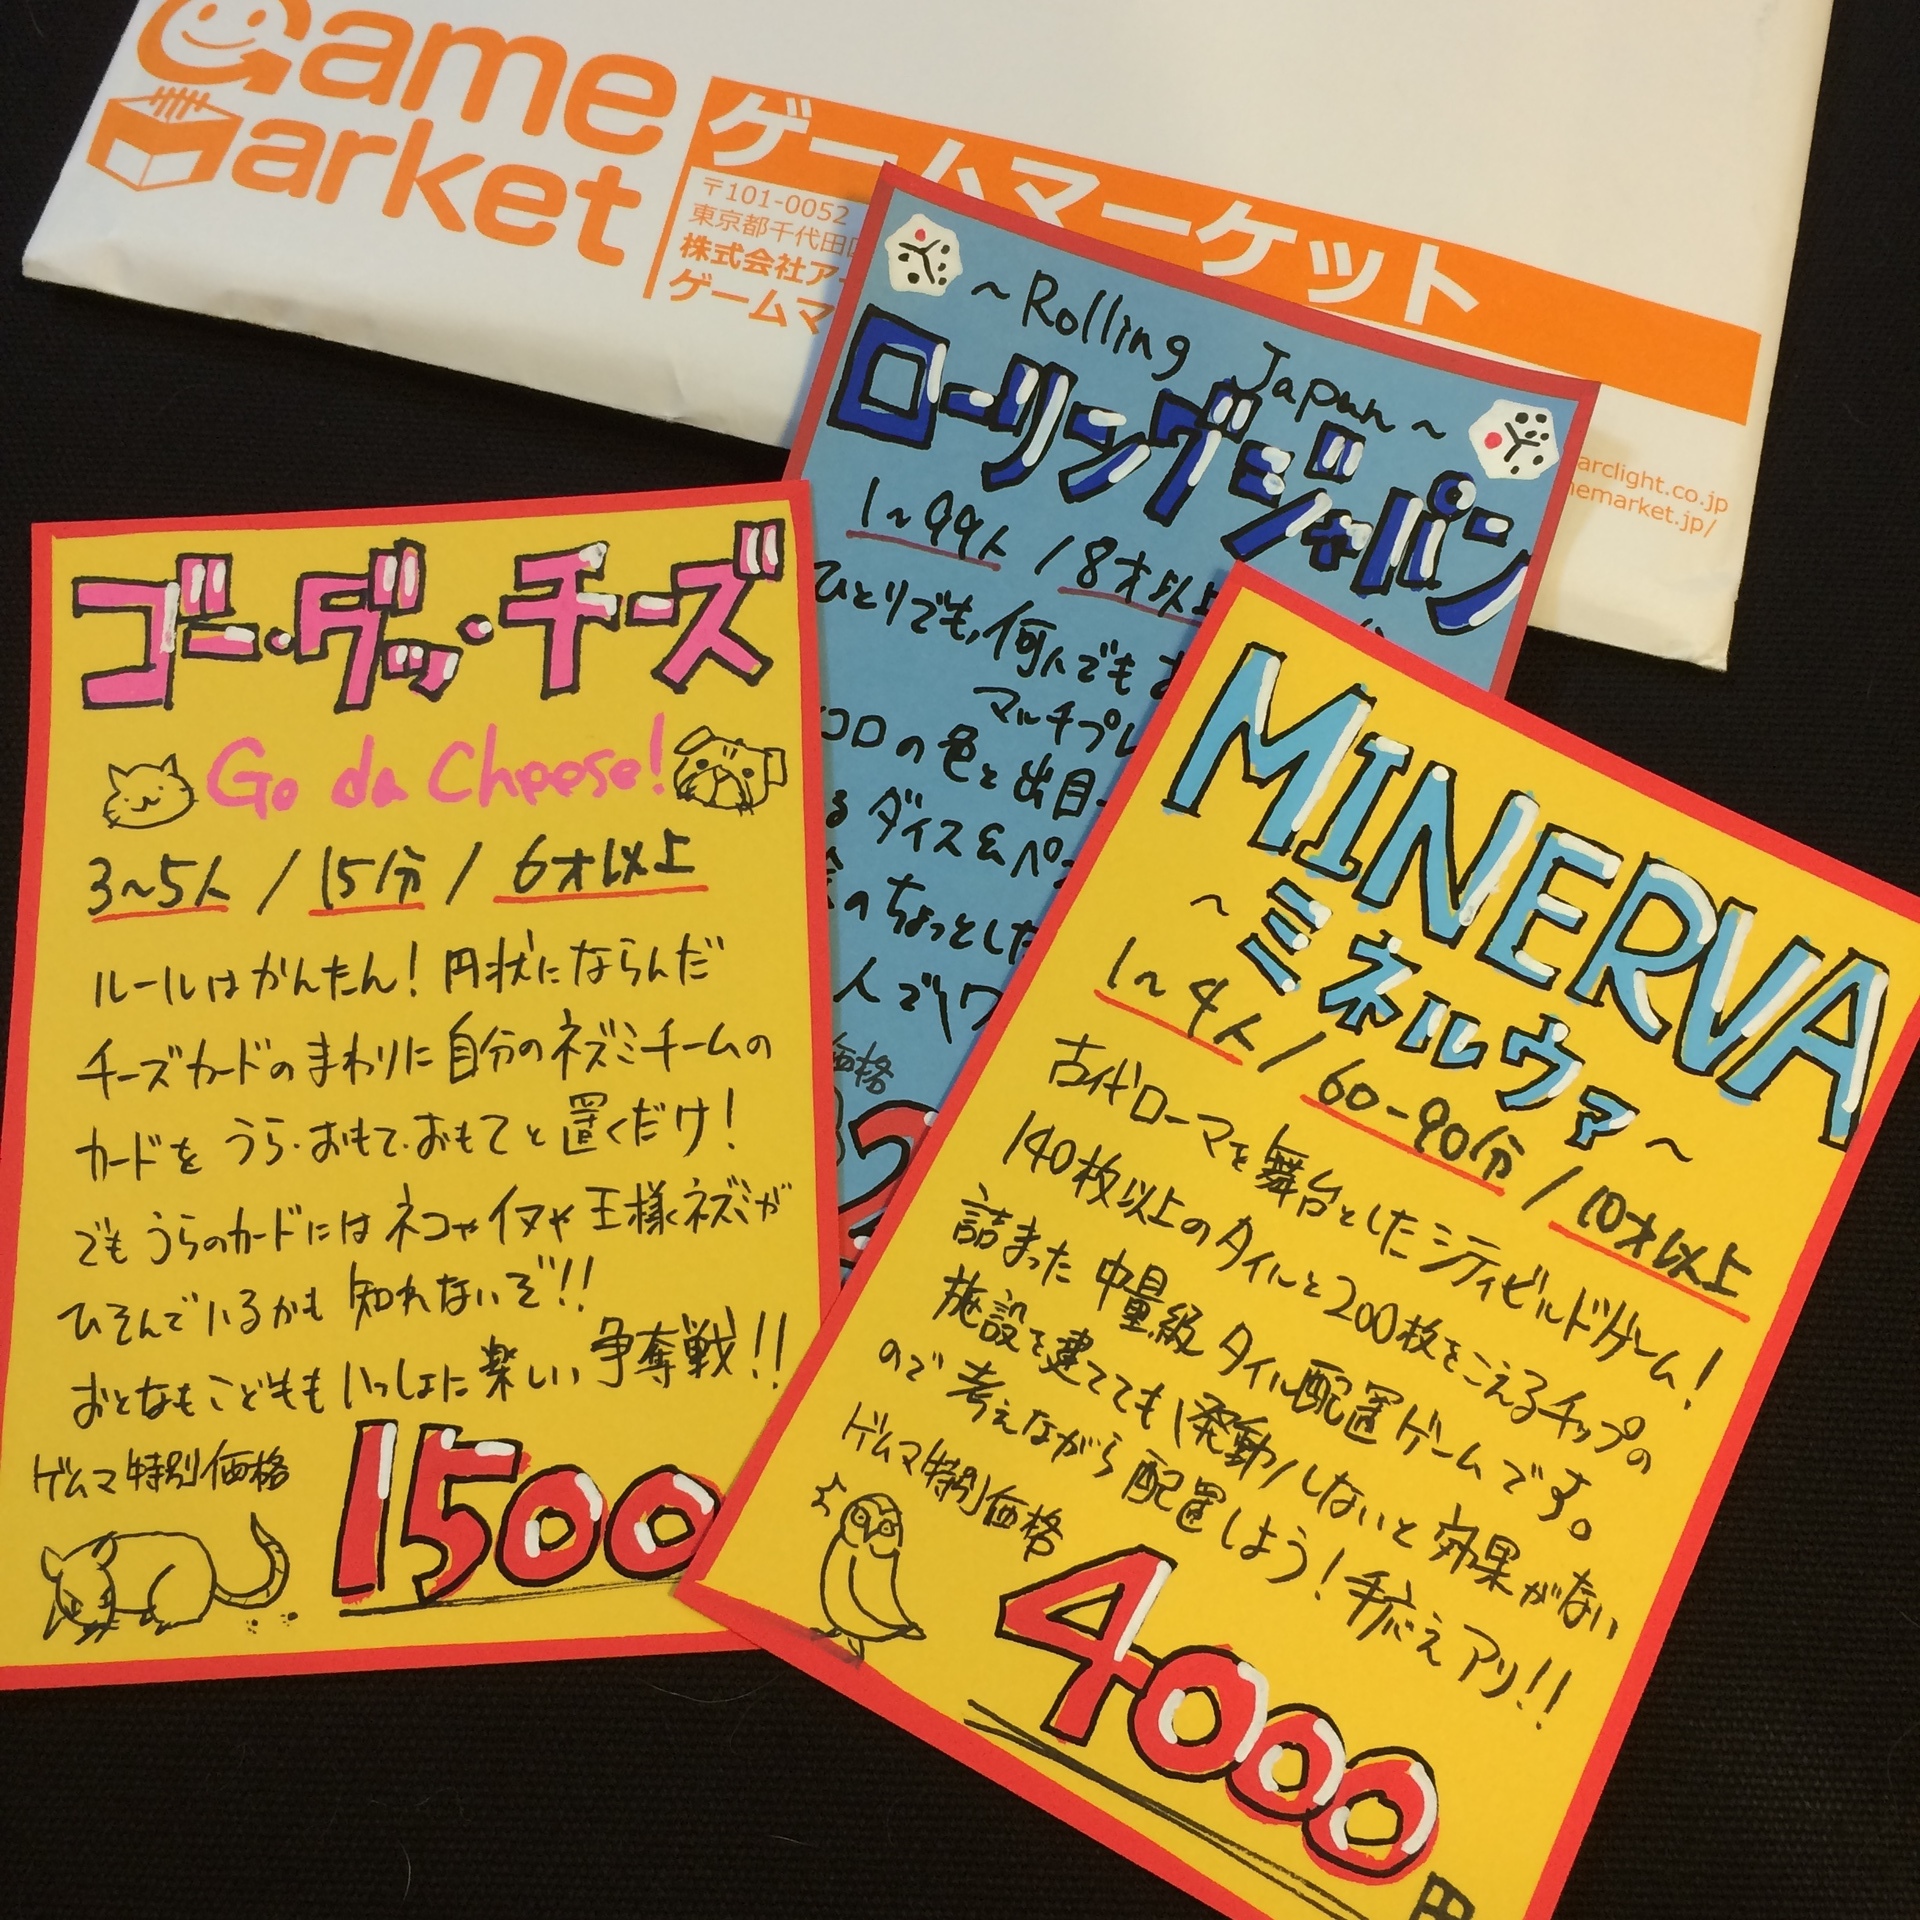 Game
Market
ゲームマーケット
〒101-0052
東京都千代田
株式会社ア
ゲームマ
arclight.co.jp
emarket.jp/
~Rolling Japan~
ローリングジャパン
1~99人/8才以上
ひとりでも、何人でも
マルチプレ
コロの色と出目
るダイス&ペ
のちょっとした
人でワ
価格
ゴー・ダッ・チーズ
Go da Cheese!
3~5人/15分/6才以上
ルールはかんたん!円状にならんだ
チーズカードのまわりに自分のネズミチームの
カードをうら・おもて・おもてと置くだけ!
でもうらのカードにはネコやイヌや王様ネズミが
ひそんでいるかも知れないぞ!!
おとなもこどももいっしょに楽しい争奪戦!!
ゲムマ特別価格
1500
MINERVA
~ミネルウァ~
1~4人/60-90分/10才以上
古代ローマを舞台としたシティビルドゲーム!
140枚以上のタイルと200枚をこえるチップの
詰まった中量級タイル配置ゲームです。
施設を建てても「発動」しないと効果がない
ので考えながら配置しよう!手応えアリ!!
ゲムマ特別価格
4000円